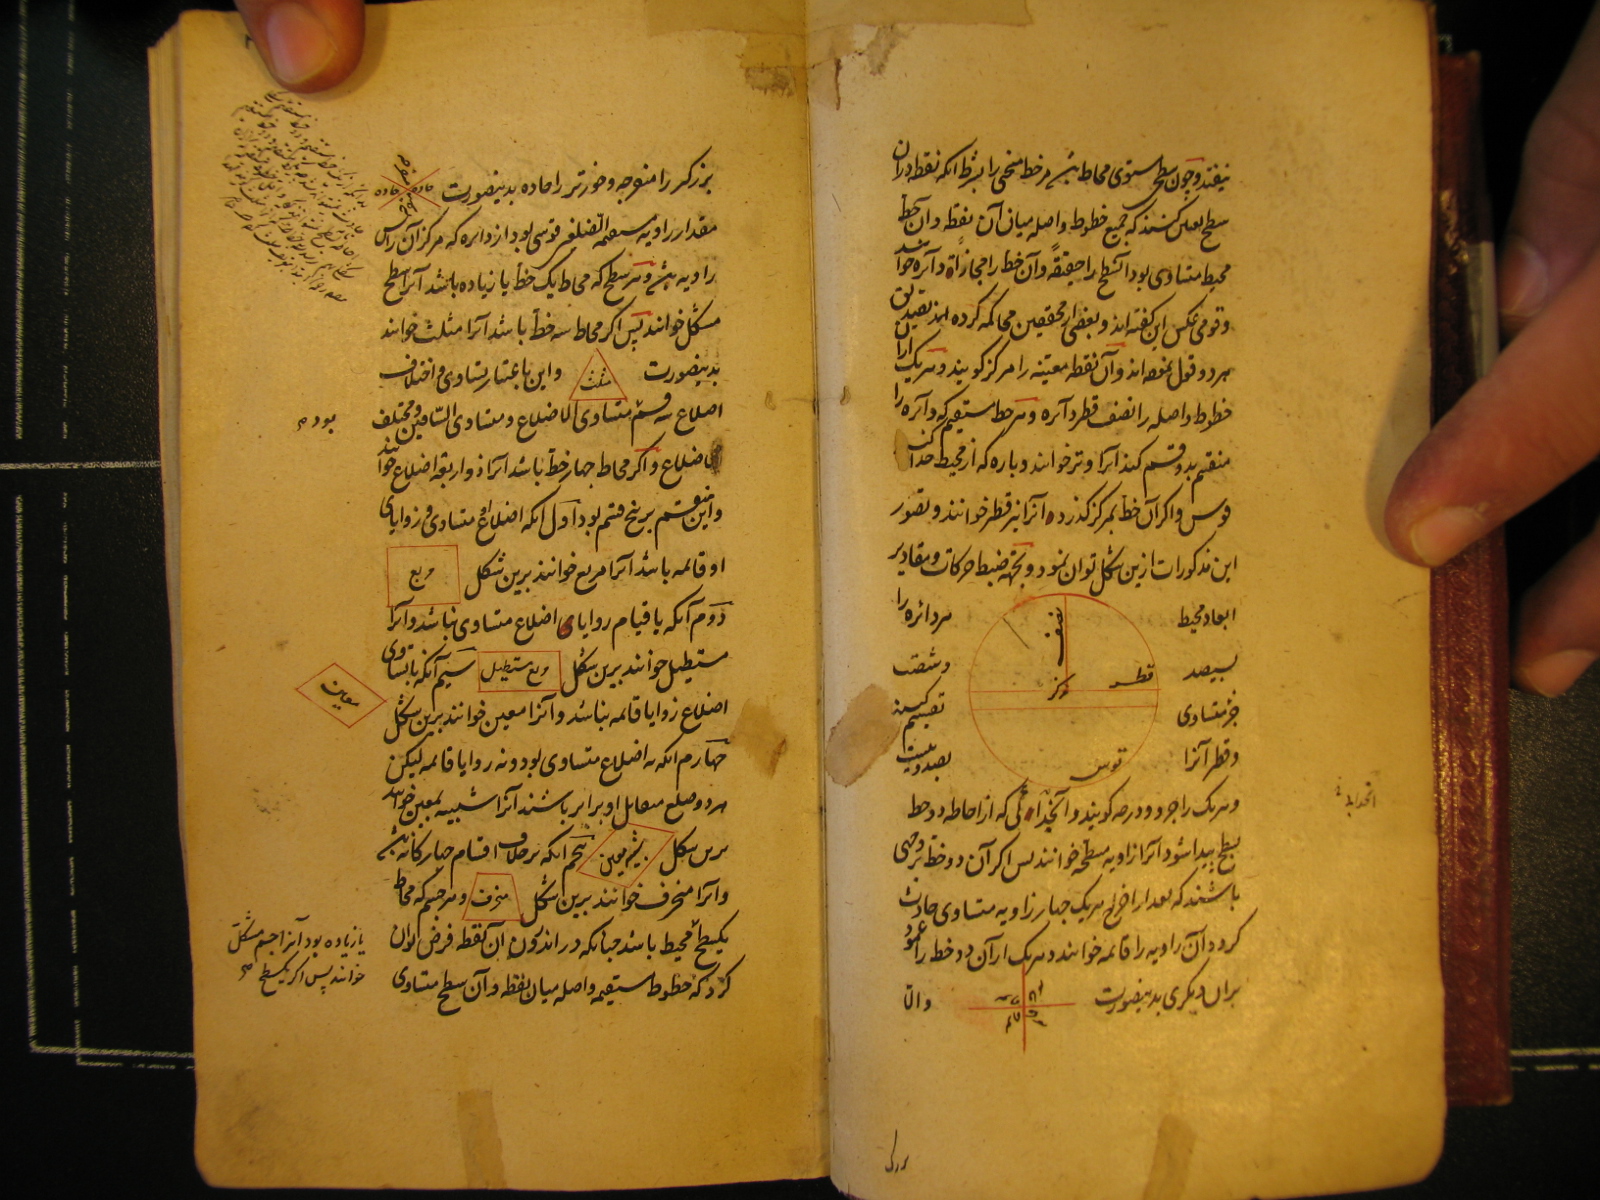 نیفتد و چون سطح مستوی محاط باشد مر خط منحنی را بشرط آنکه نقطه در آن
سطح تعین کنند که جمیع خطوط واصله میان آن نقطه و آن خط
محیط متساوی بود آن سطح را حقیقةً و آن خط را مجازاً دایره خوانند
و قومی عکس این گفته اند و بعضی از محققین محاکمه کرده اند بتصدیق
هر دو قول نموده اند و آن نقطه معینه را مرکز گویند و هر یک از آن
خطوط واصله را نصف قطر دایره و هر خط مستقیم که دایره را
منقسم بدو قسم کند آنرا وتر خوانند و پاره که از محیط جدا کند
قوس و اگر آن خط بمرکز گذرد آنرا نیز قطر خوانند و تصور
این مذکورات ازین شکل توان نمود و بجهة ضبط حرکات و مقادیر
ابعاد محیط هر دائره را
بسیصد و شصت
نصف
قطر
مرکز
قوس
جزء متساوی تقسیم کنند
و قطر آنرا بصد و بیست
و هر یک را جزو و درجه گویند و انحدابی که از احاطه دو خط
انحدابی
بسطح پیدا شود آنرا زاویه مسطحه خوانند پس اگر آن دو خط بر وجهی
باشند که بعد از اخراج هر یک چهار زاویه متساوی حادث
گردد آن زاویه را قائمه خوانند و هر یک از آن دو خط را عمود
بر آن دیگری بدینصورت والّا
قائمه قائمه
قائمه قائمه
بزرگ
بزرگتر را منفرجه و خوردتر را حاده بدینصورت
منفرجه
حاده حاده
منفرجه
مقدار زاویه مستقیمة الضلعین قوسی بود از دایره که مرکز آن رأس
زاویه باشد و هر سطح که محاط یک خط یا زیاده باشد آن سطح
مشکل خوانند پس اگر محاط سه خط باشد آنرا مثلث خوانند
بدینصورت مثلث و این باعتبار تساوی و اختلاف
اضلاع سه قسم متساوی الاضلاع و متساوی الساقین و مختلف
بود
الاضلاع و اگر محاط چهار خط باشد آنرا ذو اربعة اضلاع خوانند
و این منقسم بر پنج قسم بود اول آنکه اضلاع او متساوی و زوایای
او قائمه باشد آنرا مربع خوانند برین شکل مربع
دوم آنکه با قیام زوایای اضلاع متساوی نباشد و آنرا
مستطیل خوانند برین شکل مربع مستطیل سیم آنکه با تساوی
معین
اضلاع زوایا قائمه نباشد و آنرا معین خوانند برین شکل
چهارم آنکه نه اضلاع متساوی بود و نه زوایا قائمه لیکن
هر دو ضلع متقابل او برابر باشند آنرا شبیه بمعین خوانند
برین شکل شبیه معین پنجم آنکه بر خلاف اقسام چهارگانه باشد
و آنرا منحرف خوانند برین شکل منحرف و هر جسم که محاط
یا زیاده بود آنرا جسم مشکل
خوانند پس اگر یکسطح
یکسطح محیط باشد چنانکه در اندرون آن نقطه فرض توان
کرد که خطوط مستقیمه واصله میان نقطه و آن سطح متساوی